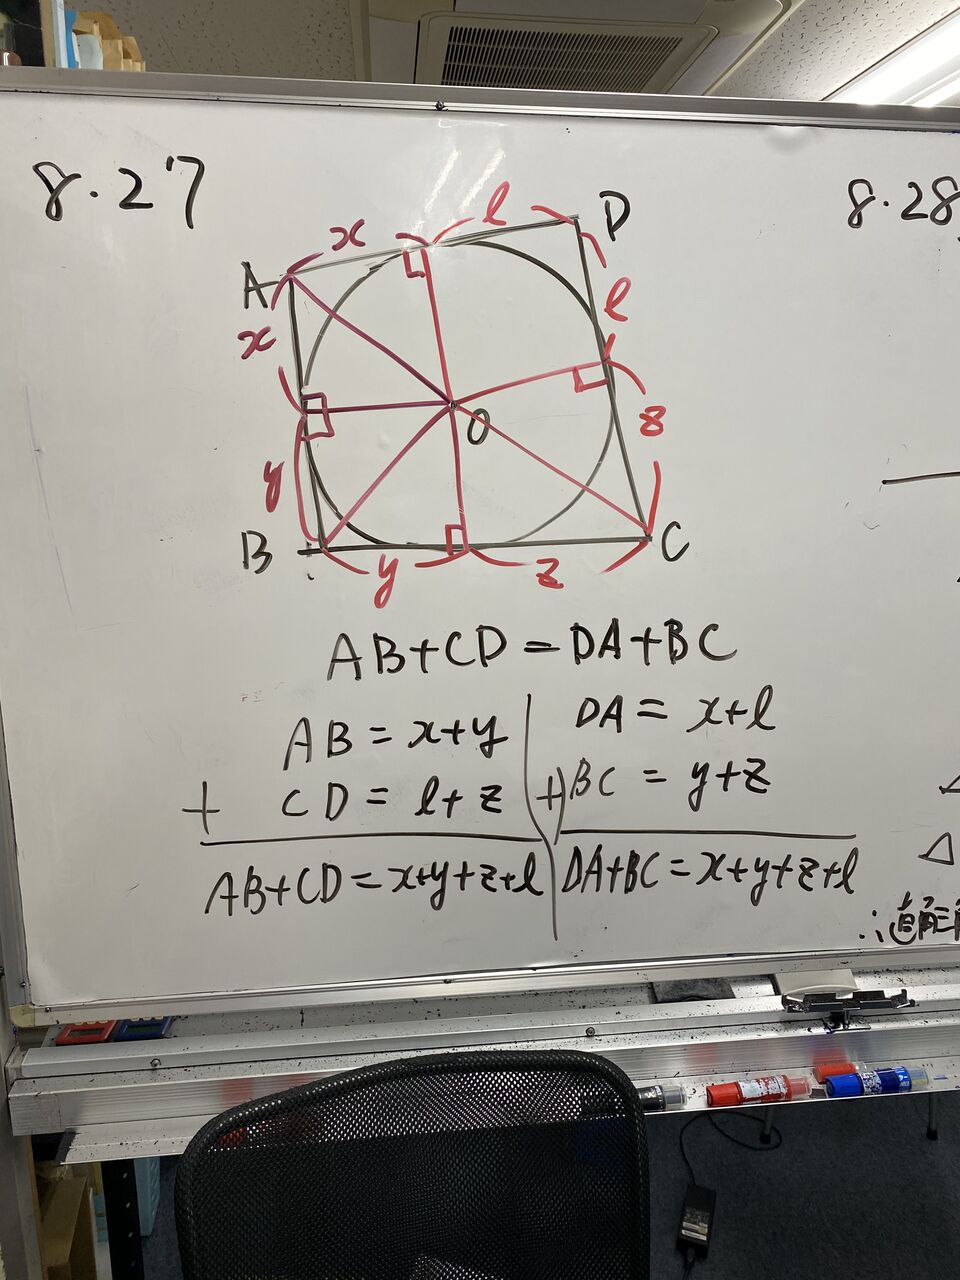 8.27
8.28
x
l
D
A
l
x
z
O
y
B
C
y
z
AB+CD=DA+BC
AB=x+y
DA=x+l
+ CD=l+z
+ BC=y+z
AB+CD=x+y+z+l
DA+BC=x+y+z+l